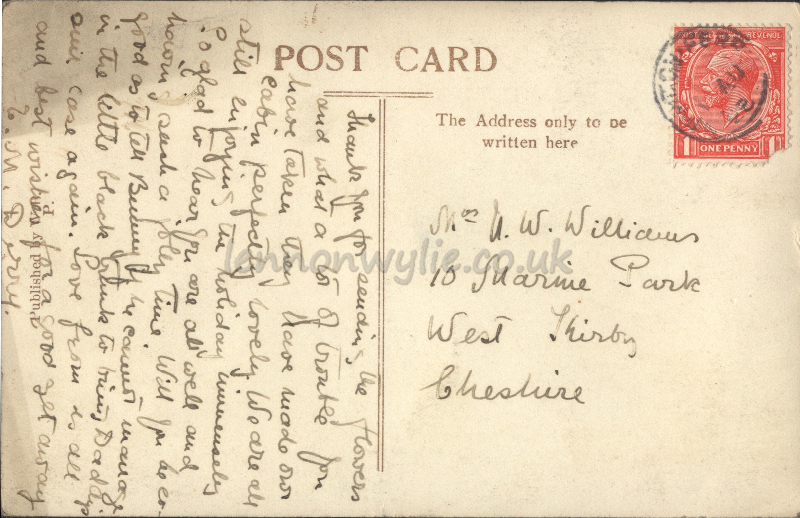 POST CARD
The Address only to be
written here
ONE PENNY
1
Mrs H. W. Williams
10 Marine Park
West Kirby
Cheshire
Thank you for sending the flowers
and what a lot of trouble you
have taken they have made our
cabin perfectly lovely We are all
still enjoying the holiday immensely
So glad to hear you are all well and
having such a jolly time Will you be so
good as to tell Bunny if he cannot manage
in the little black trunk to bring Daddy's
suit case again. Love from us all
and best wishes for a good get away
E. M. Derry.
Published by
lennonwylie.co.uk